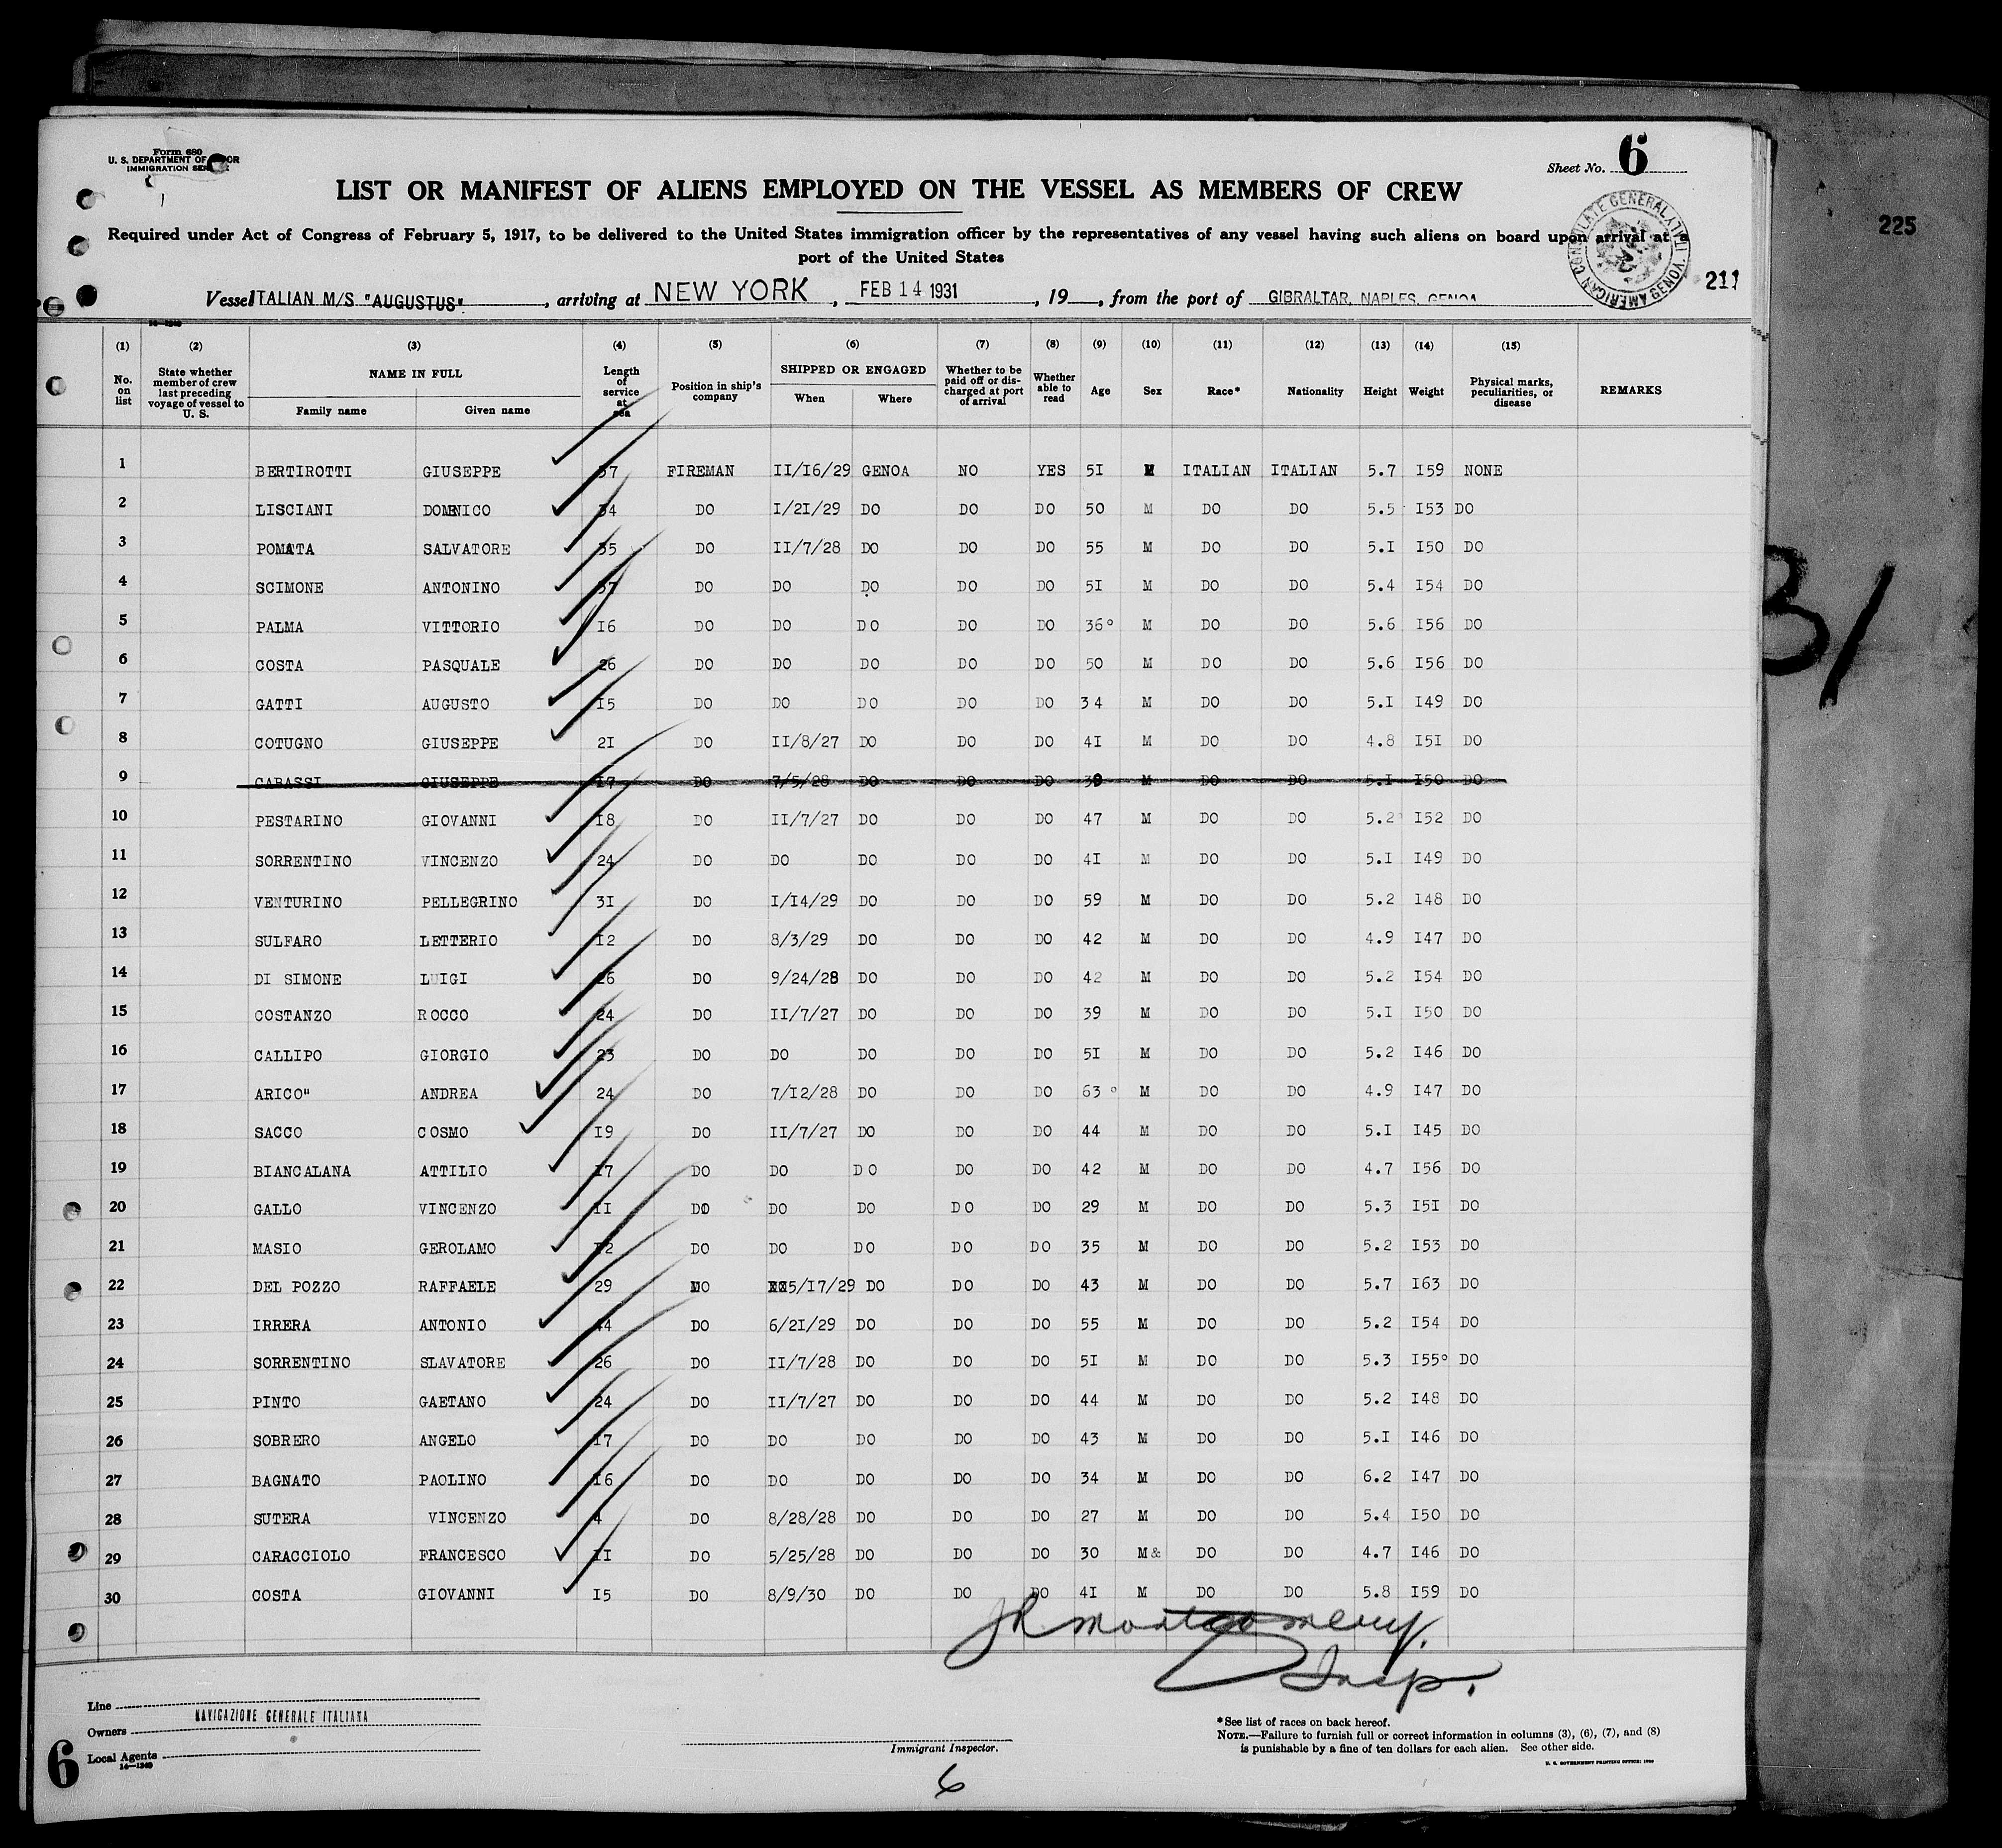 Form 680
U. S. DEPARTMENT OF
IMMIGRATION
Sheet No. 6
LIST OR MANIFEST OF ALIENS EMPLOYED ON THE VESSEL AS MEMBERS OF CREW
Required under Act of Congress of February 5, 1917, to be delivered to the United States immigration officer by the representatives of any vessel having such aliens on board upon arrival at a
port of the United States
AMERICAN CONSULATE GENERAL GENOVA, ITALY
225
211
Vessel ITALIAN M/S "AUGUSTUS", arriving at NEW YORK, FEB 14 1931, 19, from the port of GIBRALTAR, NAPLES, GENOA
(1) (2) (3) (4) (5) (6) (7) (8) (9) (10) (11) (12) (13) (14) (15)
No. on list State whether member of crew last preceding voyage of vessel to U. S. NAME IN FULL Family name Given name Length of service at sea Position in ship's company SHIPPED OR ENGAGED When Where Whether to be paid off or discharged at port of arrival Whether able to read Age Sex Race* Nationality Height Weight Physical marks, peculiarities, or disease REMARKS
1 BERTIROTTI GIUSEPPE 37 FIREMAN II/I6/29 GENOA NO YES 5I M ITALIAN ITALIAN 5.7 I59 NONE
2 LISCIANI DOMENICO 34 DO I/2I/29 DO DO DO 50 M DO DO 5.5 I53 DO
3 POMATA SALVATORE 35 DO II/7/28 DO DO DO 55 M DO DO 5.I I50 DO
4 SCIMONE ANTONINO 37 DO DO DO DO DO 5I M DO DO 5.4 I54 DO
5 PALMA VITTORIO I6 DO DO DO DO DO 36° M DO DO 5.6 I56 DO
6 COSTA PASQUALE 26 DO DO DO DO DO 50 M DO DO 5.6 I56 DO
7 GATTI AUGUSTO I5 DO DO DO DO DO 34 M DO DO 5.I I49 DO
8 COTUGNO GIUSEPPE 2I DO II/8/27 DO DO DO 4I M DO DO 4.8 I5I DO
9 CABASSI GIUSEPPE I7 DO 7/5/28 DO DO DO 39 M DO DO 5.I I50 DO
10 PESTARINO GIOVANNI I8 DO II/7/27 DO DO DO 47 M DO DO 5.2 I52 DO
11 SORRENTINO VINCENZO 24 DO DO DO DO DO 4I M DO DO 5.I I49 DO
12 VENTURINO PELLEGRINO 3I DO I/I4/29 DO DO DO 59 M DO DO 5.2 I48 DO
13 SULFARO LETTERIO I2 DO 8/3/29 DO DO DO 42 M DO DO 4.9 I47 DO
14 DI SIMONE LUIGI 26 DO 9/24/28 DO DO DO 42 M DO DO 5.2 I54 DO
15 COSTANZO ROCCO 24 DO II/7/27 DO DO DO 39 M DO DO 5.I I50 DO
16 CALLIPO GIORGIO 23 DO DO DO DO DO 5I M DO DO 5.2 I46 DO
17 ARICO" ANDREA 24 DO 7/I2/28 DO DO DO 63° M DO DO 4.9 I47 DO
18 SACCO COSMO I9 DO II/7/27 DO DO DO 44 M DO DO 5.I I45 DO
19 BIANCALANA ATTILIO I7 DO DO DO DO DO 42 M DO DO 4.7 I56 DO
20 GALLO VINCENZO II DO DO DO DO DO 29 M DO DO 5.3 I5I DO
21 MASIO GEROLAMO I2 DO DO DO DO DO 35 M DO DO 5.2 I53 DO
22 DEL POZZO RAFFAELE 29 DO 5/I7/29 DO DO DO 43 M DO DO 5.7 I63 DO
23 IRRERA ANTONIO 44 DO 6/2I/29 DO DO DO 55 M DO DO 5.2 I54 DO
24 SORRENTINO SLAVATORE 26 DO II/7/28 DO DO DO 5I M DO DO 5.3 I55° DO
25 PINTO GAETANO 24 DO II/7/27 DO DO DO 44 M DO DO 5.2 I48 DO
26 SOBRERO ANGELO I7 DO DO DO DO DO 43 M DO DO 5.I I46 DO
27 BAGNATO PAOLINO I6 DO DO DO DO DO 34 M DO DO 6.2 I47 DO
28 SUTERA VINCENZO 4 DO 8/28/28 DO DO DO 27 M DO DO 5.4 I50 DO
29 CARACCIOLO FRANCESCO II DO 5/25/28 DO DO DO 30 M& DO DO 4.7 I46 DO
30 COSTA GIOVANNI I5 DO 8/9/30 DO DO DO 4I M DO DO 5.8 I59 DO
JR Montgomery.
Insp.
Line
NAVIGAZIONE GENERALE ITALIANA
Owners
Local Agents
14—1240
6
Immigrant Inspector.
6
*See list of races on back hereof.
NOTE.—Failure to furnish full or correct information in columns (3), (6), (7), and (8)
is punishable by a fine of ten dollars for each alien. See other side.
U. S. GOVERNMENT PRINTING OFFICE: 1930
31